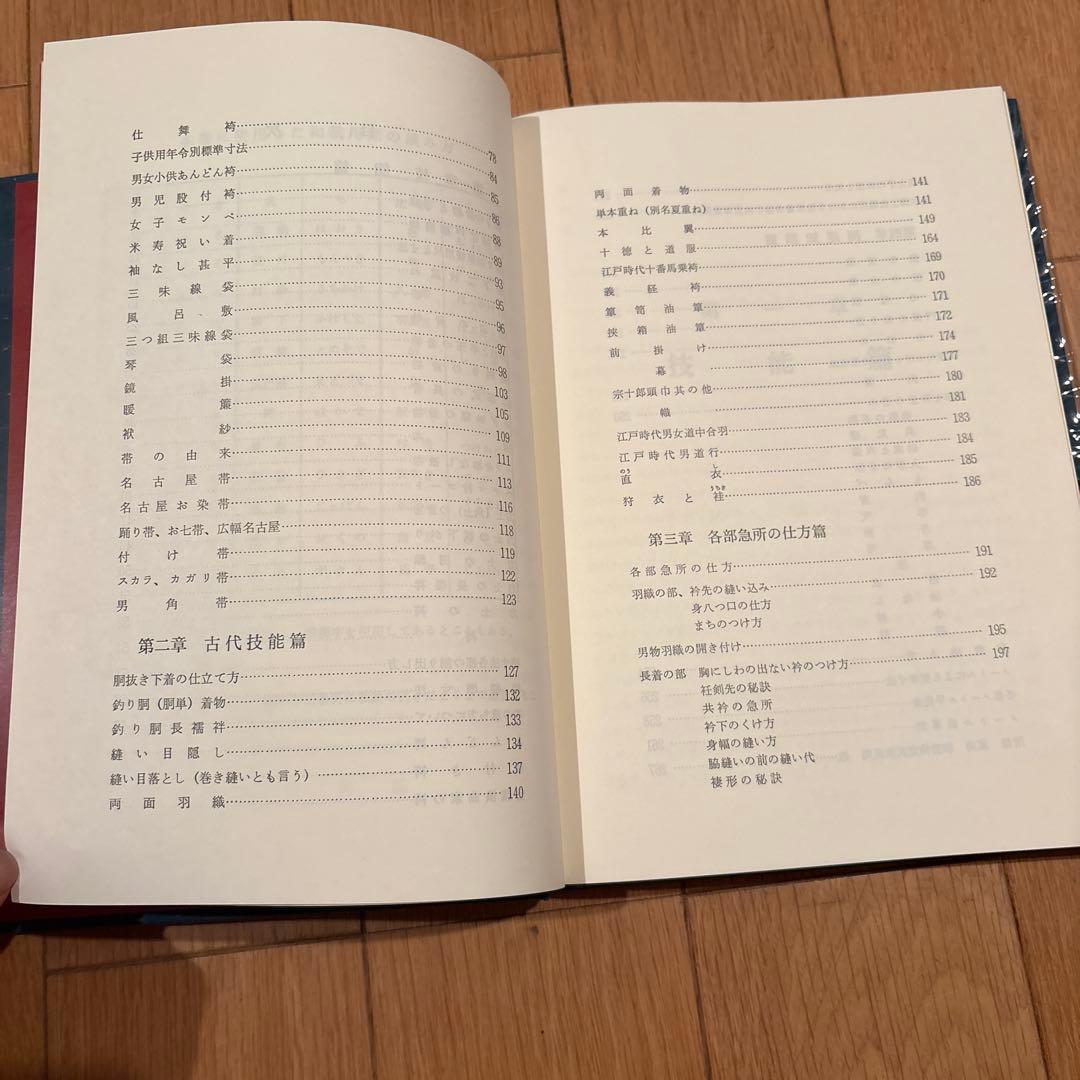 仕舞袴……78
子供用年令別標準寸法……84
男女小供あんどん袴……85
男児股付袴……86
女子モンペ……88
米寿祝い着……89
袖なし甚平……93
三味線袋……95
風呂敷……96
三つ組三味線袋……97
琴袋……98
鏡掛……103
暖簾……105
袱紗……109
帯の由来……111
名古屋帯……113
名古屋お染帯……116
踊り帯、お七帯、広幅名古屋……118
付け帯……119
スカラ、カガリ帯……122
男角帯……123
第二章 古代技能篇
胴抜き下着の仕立て方……127
釣り胴(胴単)着物……132
釣り胴長襦袢……133
縫い目隠し……134
縫い目落とし(巻き縫いとも言う)……137
両面羽織……140
両面着物……141
単本重ね(別名夏重ね)……141
本比翼……149
十徳と道服……164
江戸時代十番馬乗袴……169
義経袴……170
簞笥油簞……171
挾箱油簞……172
前掛け……174
幕……177
宗十郎頭巾其の他……180
幟……181
江戸時代男女道中合羽……183
江戸時代男道行……184
直衣……185
狩衣と袿……186
第三章 各部急所の仕方篇
各部急所の仕方……191
羽織の部、衿先の縫い込み……192
身八つ口の仕方
まちのつけ方
男物羽織の開き付け……195
長着の部 胸にしわの出ない衿のつけ方……197
衽剣先の秘訣
共衿の急所
衿下のくけ方
身幅の縫い方
脇縫いの前の縫い代
褄形の秘訣